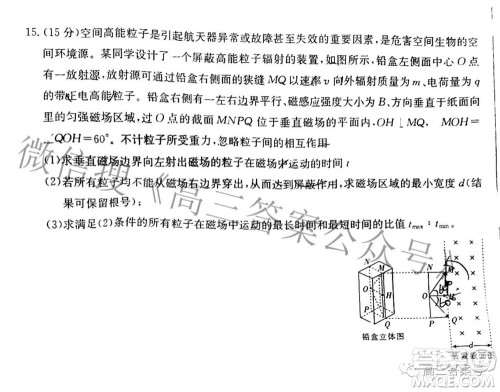 15.(15分)空间高能粒子是引起航天器异常或故障甚至失效的重要因素,是危害空间生物的空
间环境源。某同学设计了一个屏蔽高能粒子辐射的装置,如图所示,铅盒左侧面中心O点
有一放射源,放射源可通过铅盒右侧面的狭缝MQ以速率v向外辐射质量为m、电荷量为q
的带正电高能粒子。铅盒右侧有一左右边界平行、磁感应强度大小为B、方向垂直于纸面向
里的匀强磁场区域,过O点的截面MNPQ位于垂直磁场的平面内,OH⊥MQ,MOH=
QOH=60°。不计粒子所受重力,忽略粒子间的相互作用
(1)求垂直磁场边界向左射出磁场的粒子在磁场中运动的时间t
(2)若所有粒子均不能从磁场右边界穿出,从而达到屏蔽作用,求磁场区域的最小宽度d(结
果可保留根号);
(3)求满足(2)条件的所有粒子在磁场中运动的最长时间和最短时间的比值tmax:tmin。
微信搜《高三答案公众号》
N M
O H
P Q
铅盒立体图
N M
O
P Q
d
高三答案